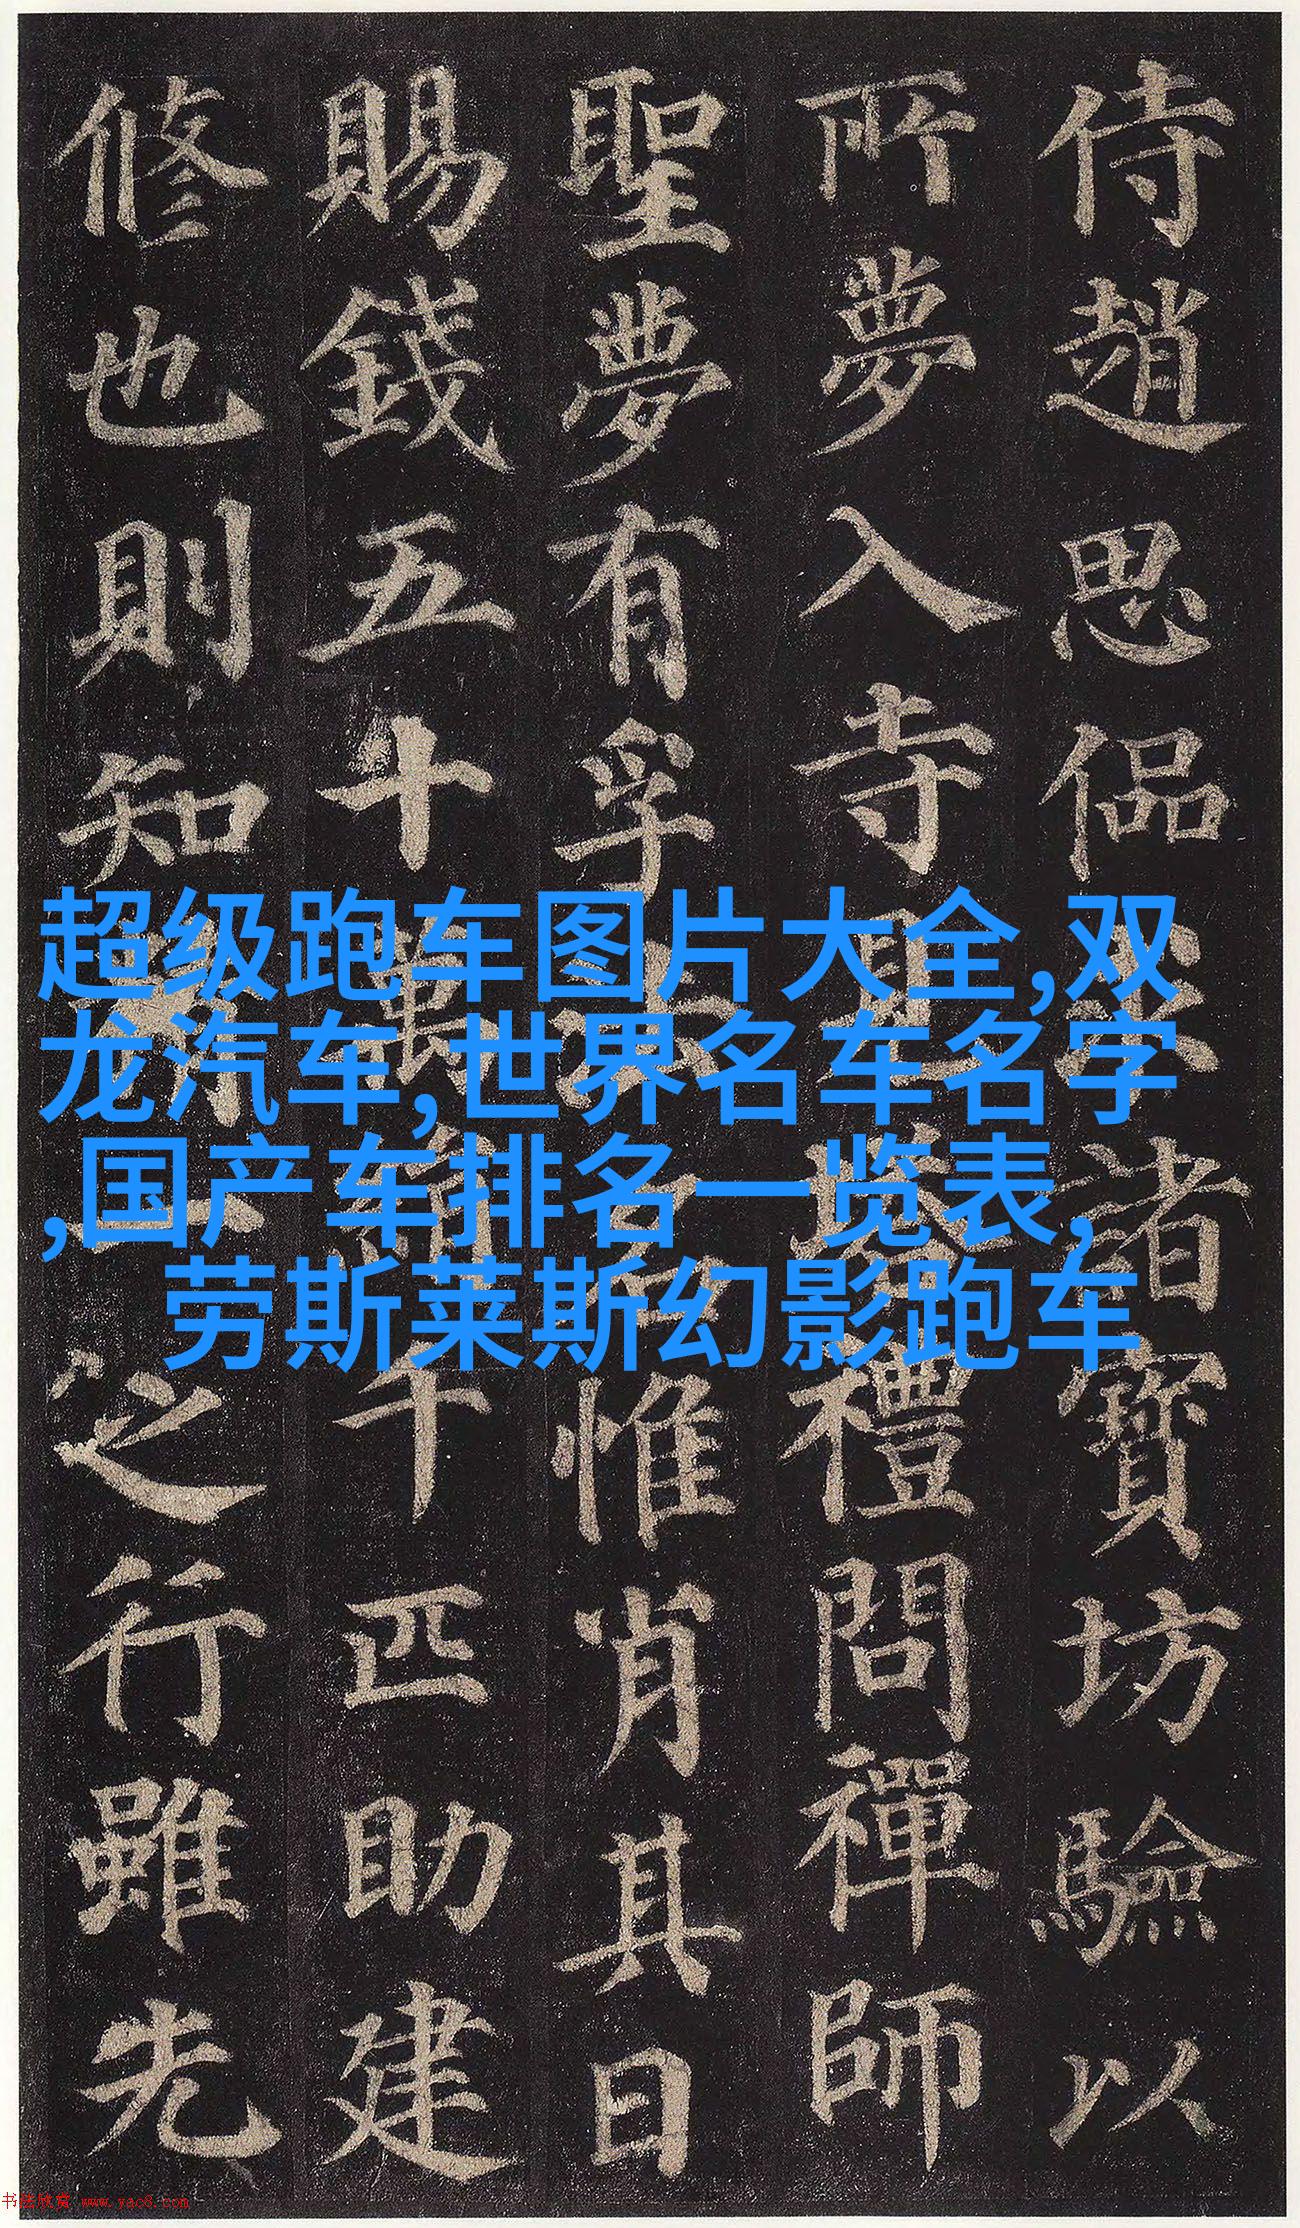 侍趙思偘求諸寶坊驗以
所夢入寺見塔禮問禪師
聖夢有孚法名惟肖其日
賜錢五十萬絹千匹助建
修也則知精一之行雖先
超级跑车图片大全,双
龙汽车,世界名车名字
,国产车排名一览表,
劳斯莱斯幻影跑车
书法欣赏 www.yac8.com